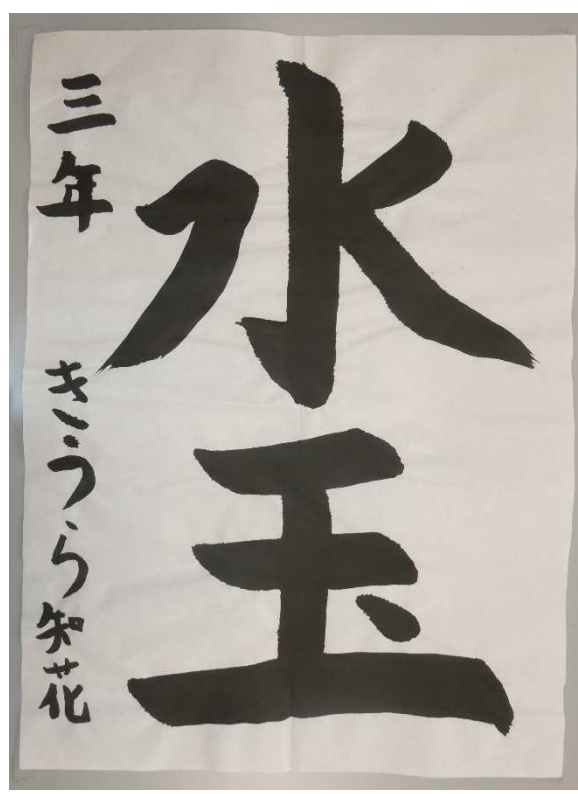 水玉
三年 きうら知花